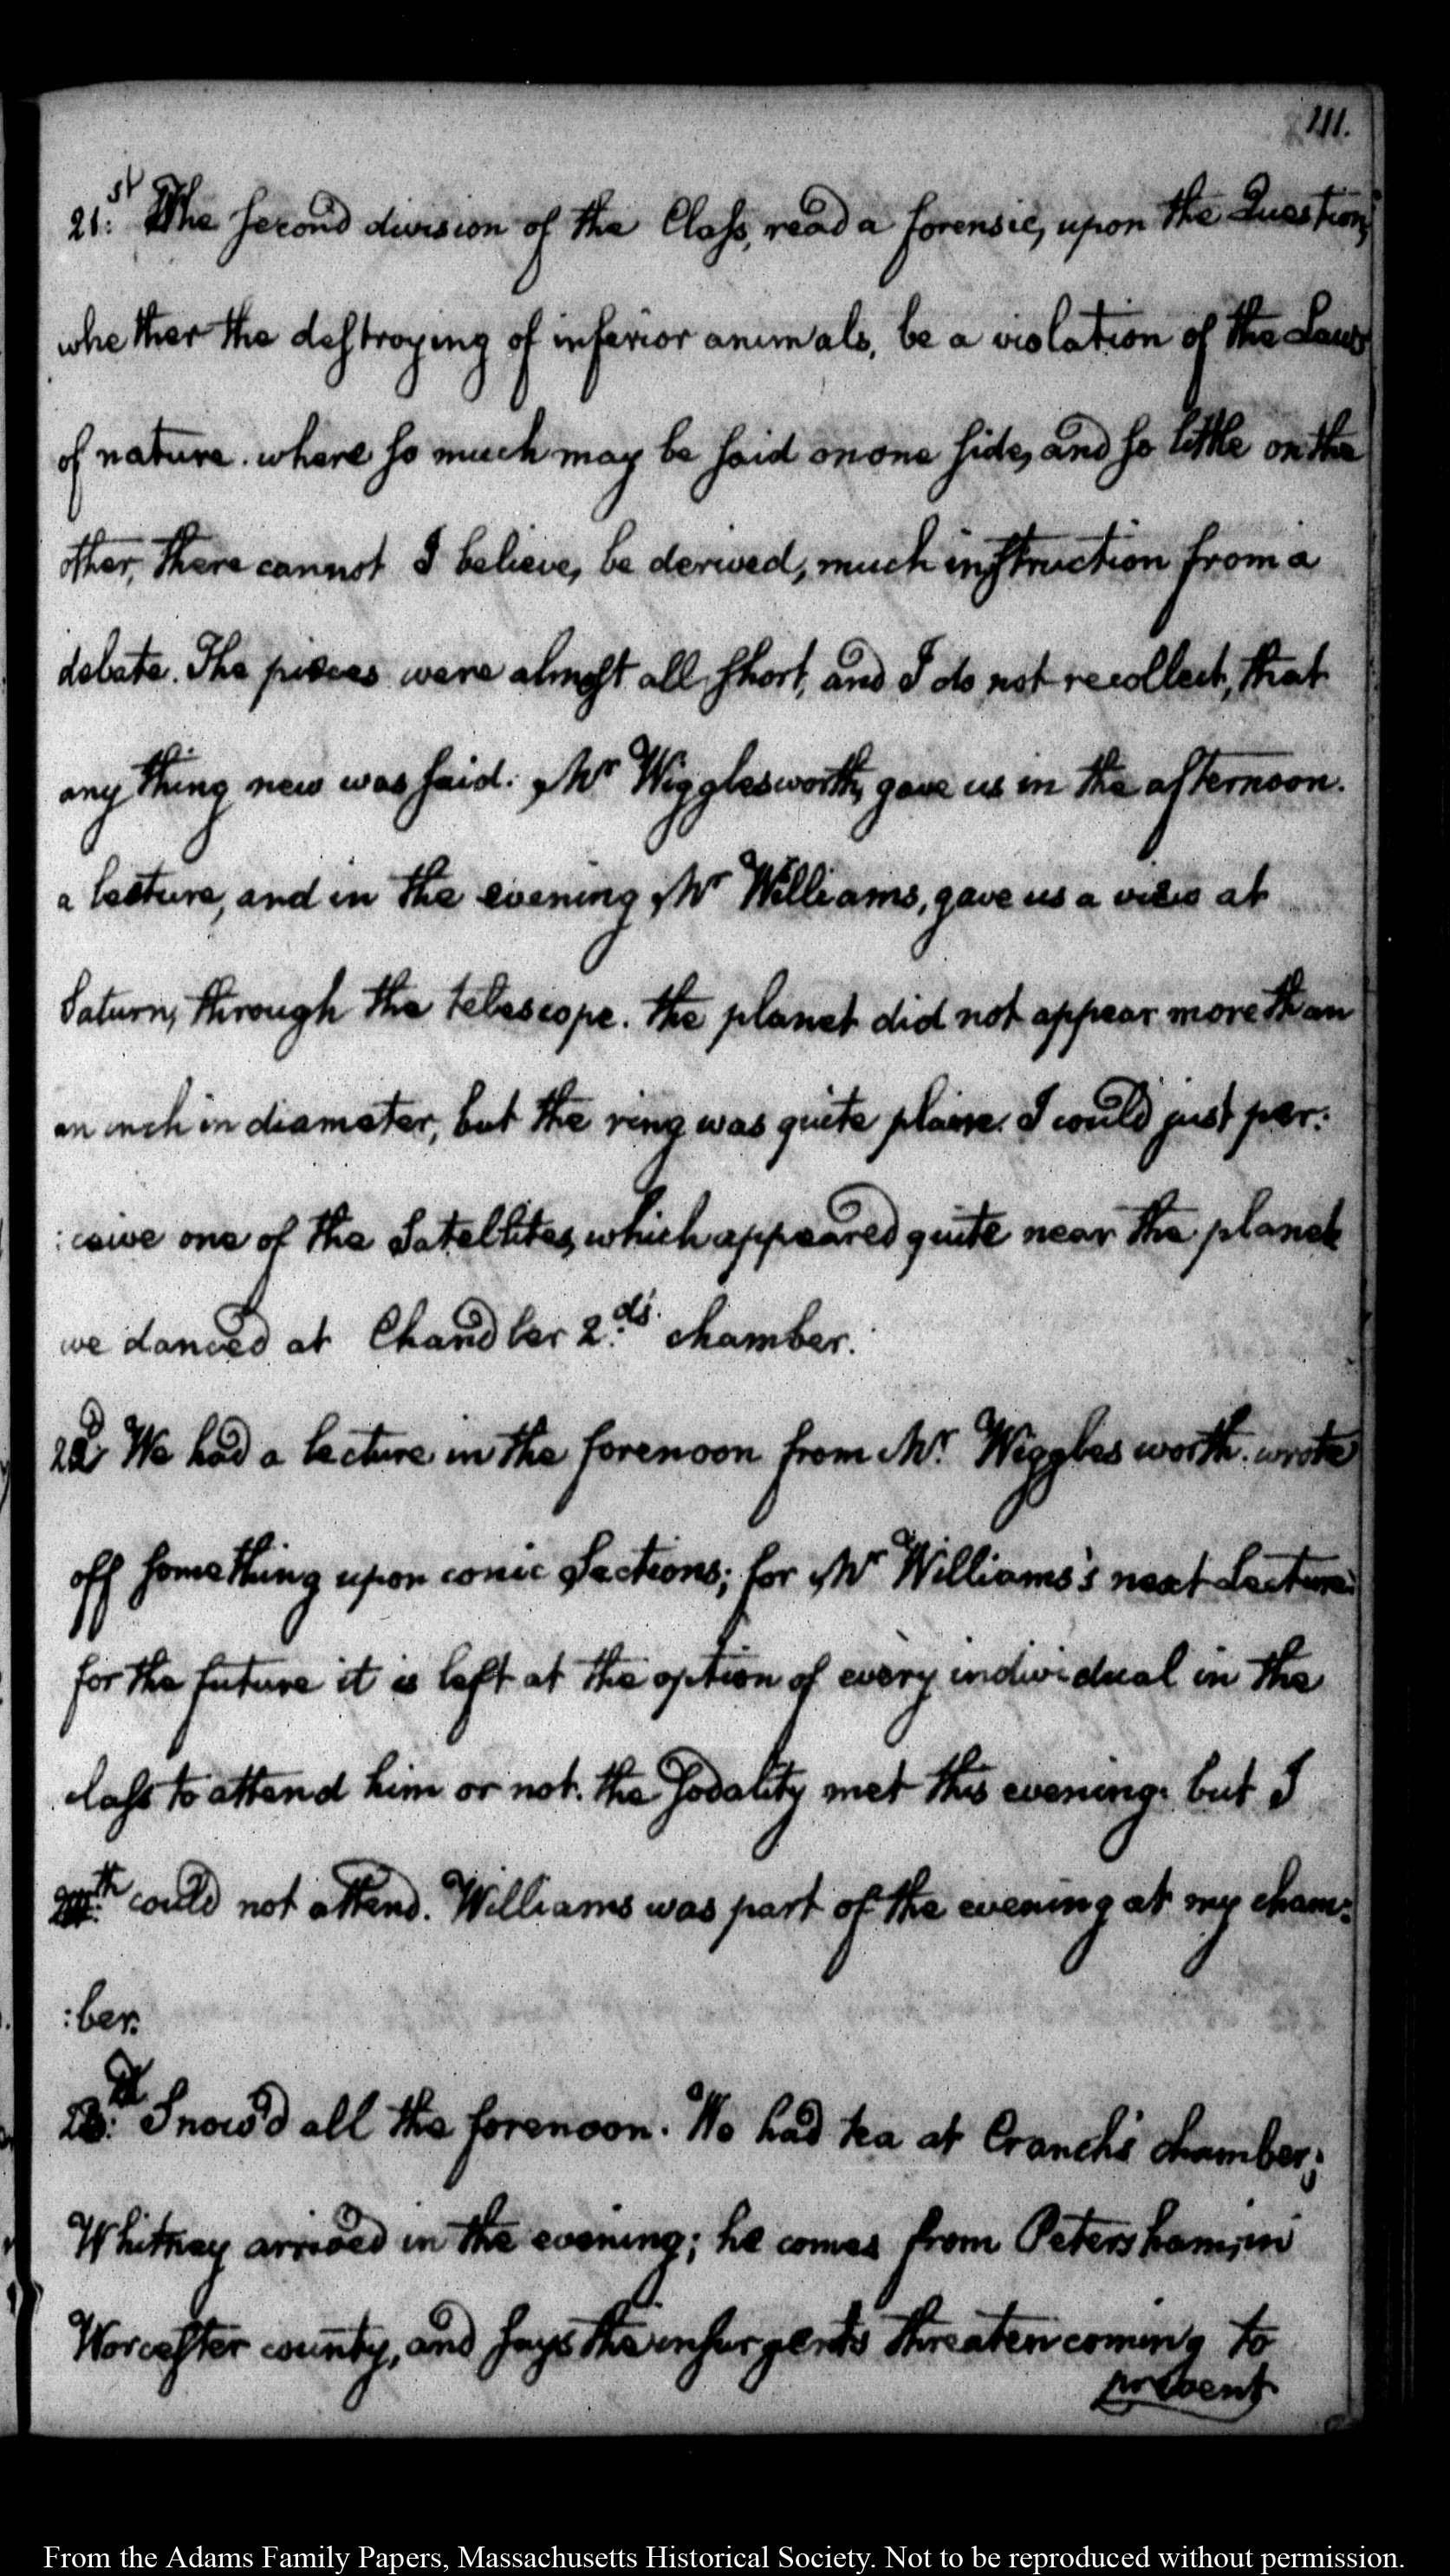 111.
21.st The second division of the Class, read a forensic, upon the Question,
whether the destroying of inferior animals, be a violation of the Laws
of nature. where so much may be said on one side, and so little on the
other, there cannot I believe, be derived, much instruction from a
debate. The pieces were almost all short, and I do not recollect, that
any thing new was said. Mr Wigglesworth, gave us in the afternoon.
a lecture, and in the evening Mr Williams, gave us a view at
Saturn, through the telescope. the planet did not appear more than
an inch in diameter, but the ring was quite plaine. I could just per:
:ceive one of the Satellites, which appeared quite near the planet
we danced at Chandler 2.ds. chamber.
22d We had a lecture in the forenoon from Mr. Wigglesworth. wrote
off something upon conic Sections; for Mr Williams's next Lecture.
for the future it is left at the option of every individual in the
class to attend him or not. the Sodality met this evening. but I
could not attend. Williams was part of the evening at my cham:
:ber.
23.d Snow'd all the forenoon. We had tea at Cranch's chamber;
Whitney arrived in the evening; he comes from Petersham, in
Worcester county, and says the insurgents threaten coming to
prevent
From the Adams Family Papers, Massachusetts Historical Society. Not to be reproduced without permission.